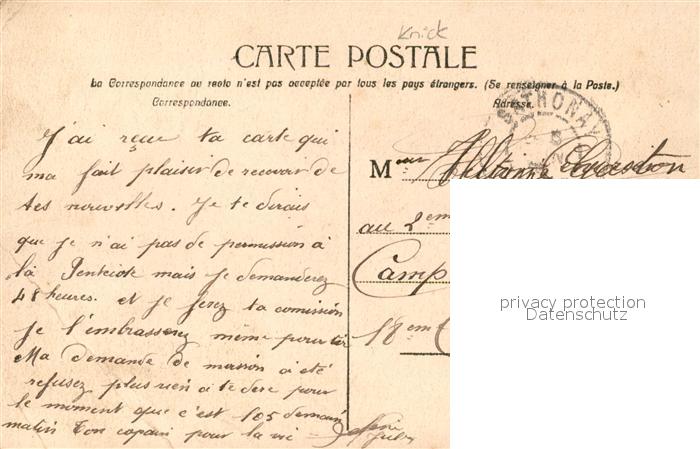 Knick
CARTE POSTALE
La Correspondance au recto n'est pas acceptée par tous les pays étrangers. (Se renseigner à la Poste.)
Correspondance.
Adresse.
SATHONAY
J'ai reçue ta carte qui
ma fait plaisir de recevoir de
tes nouvelles. Je te dirais
que je n'ai pas de permission à
la Pentecote mais je demanderez
48 heures. et je ferez ta comission
je l'embrasserez même pour toi
Ma demande de mission a été
refusez plus rien a te dire pour
le moment que c'est 105 demain
matin Ton copain pour la vie
Mr
au 2em
Camp
18em
privacy protection
Datenschutz